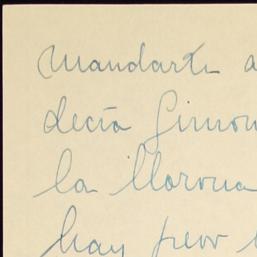 Mandarte a
decía Simon
la llorona
hay peor